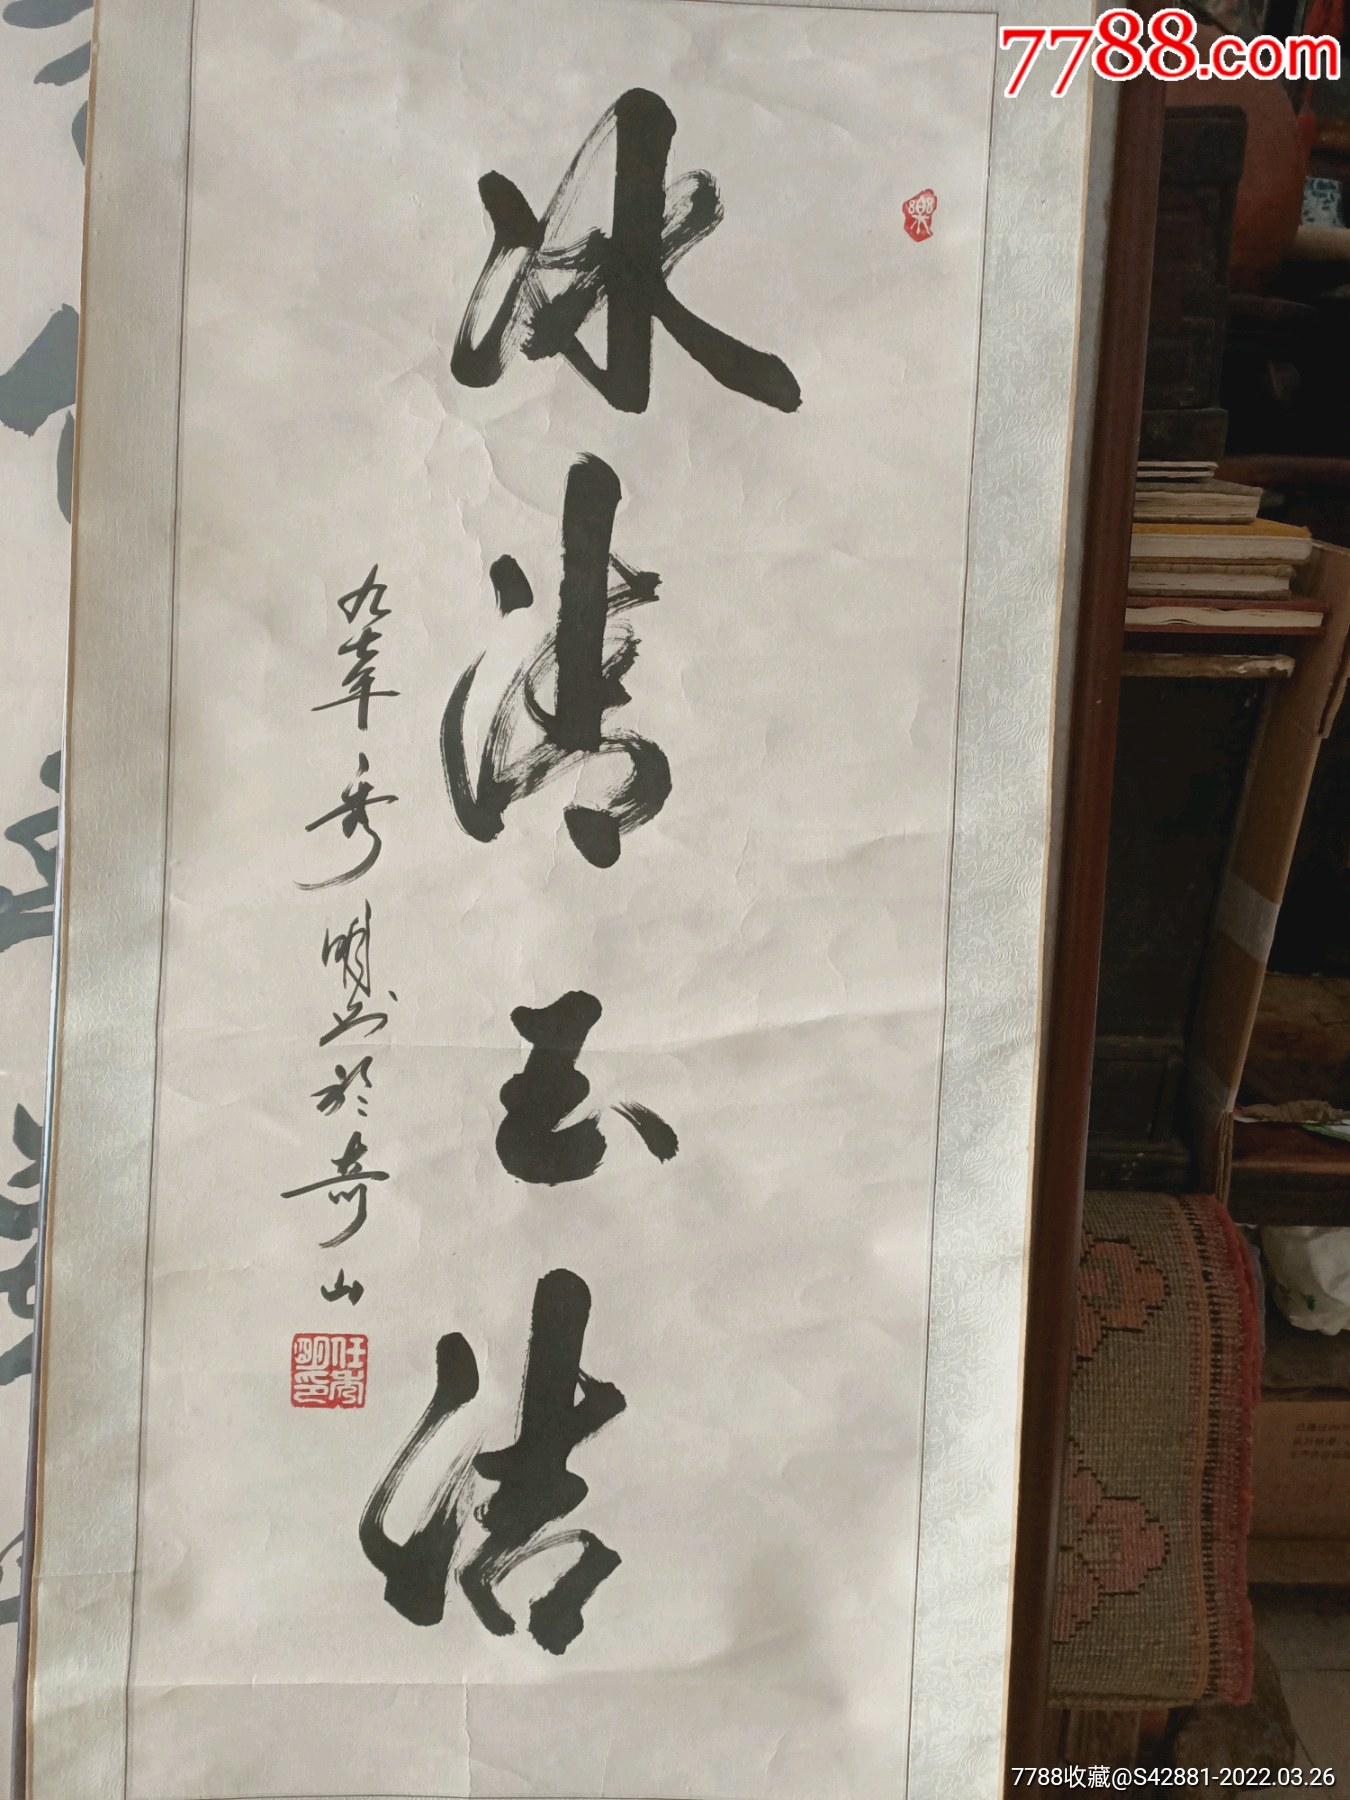 7788.com
冰清玉洁
樂
九七年秀明书於奇山
任秀明印
7788收藏@S42881-2022.03.26